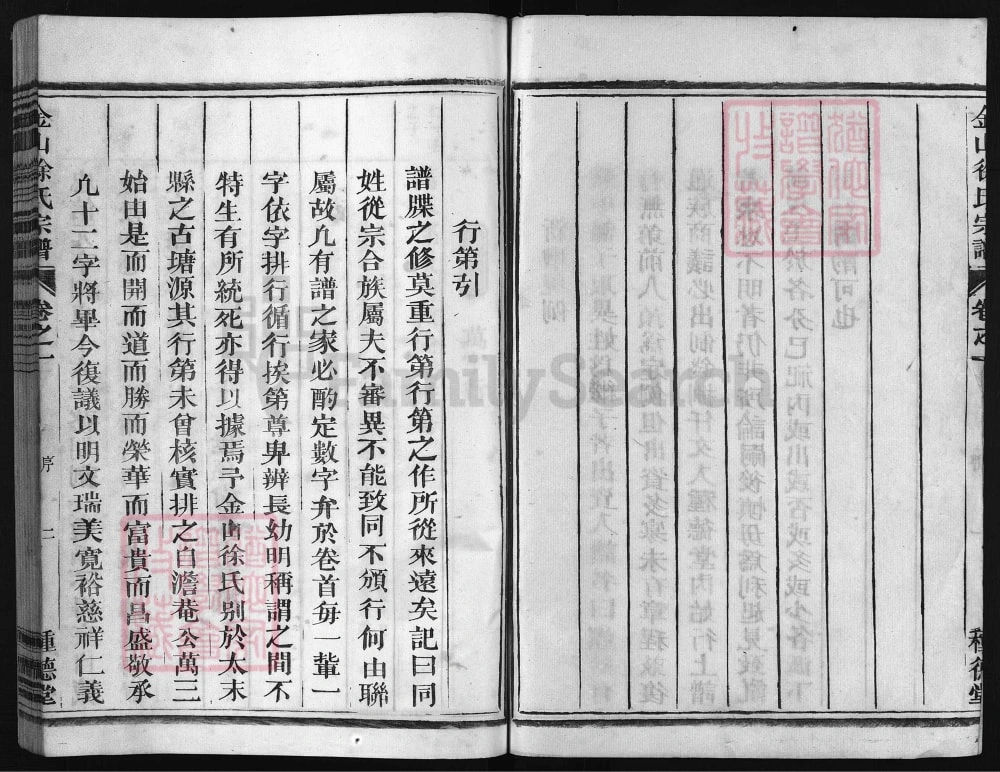 金山徐氏宗譜
行第引
譜牒之修莫重行第行第之作所從來遠矣記曰同
姓從宗合族屬夫不審異不能致同不頒行何由聯
屬故凢有譜之家必酌定數字弁於卷首毎一輩一
字依字排行循行挨第尊卑辨長幼明稱謂之間不
特生有所統死亦得以據焉予金山徐氏别於太末
縣之古塘源其行第未曾核實排之自澹菴公萬三
始由是而開而道而勝而榮華而富貴而昌盛敬承
凢十二字將畢今復議以明文瑞美寛裕慈祥仁義
金山徐氏宗譜
卷之一
序
二
重德堂
FamilySearch